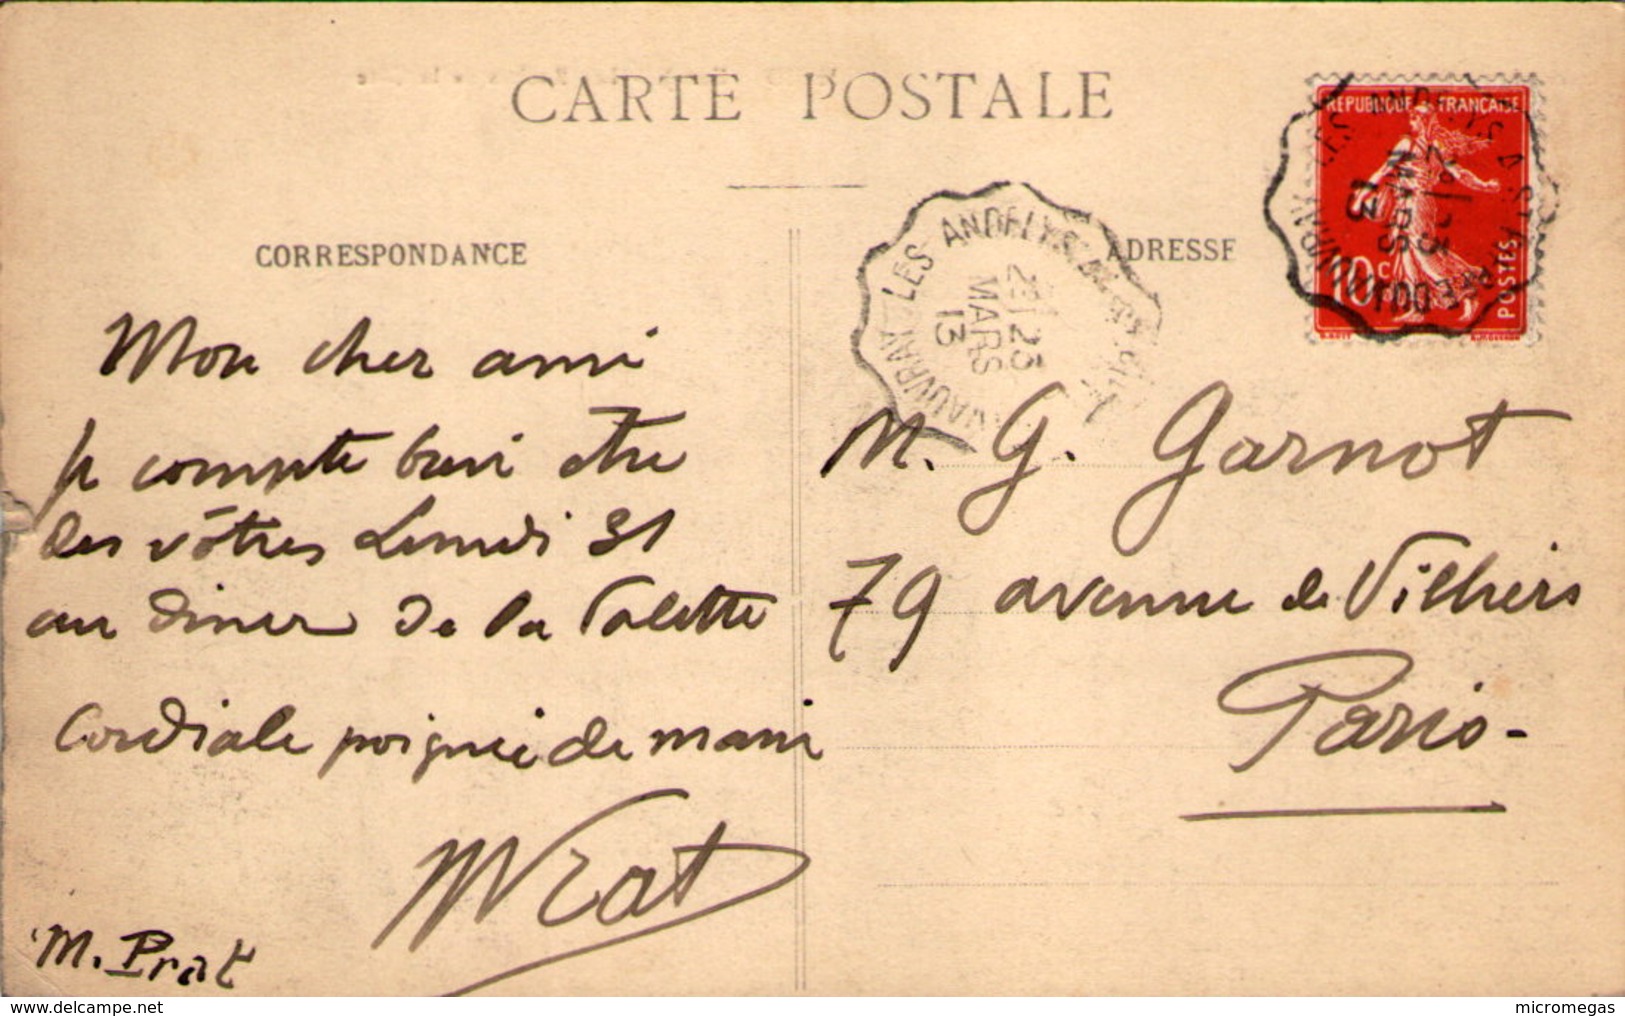 CARTE POSTALE
CORRESPONDANCE
ADRESSE
REPUBLIQUE FRANÇAISE
10c
POSTES
LES ANDELYS
MARS
13
Mon cher ami
je compte bien être
des vôtres Lundi 31
au diner de La Valette
Cordiale poignée de main
MPrat
M. Prat
M. G. Garnot
79 avenue de Villiers
Paris-
www.delcampe.net
micromegas